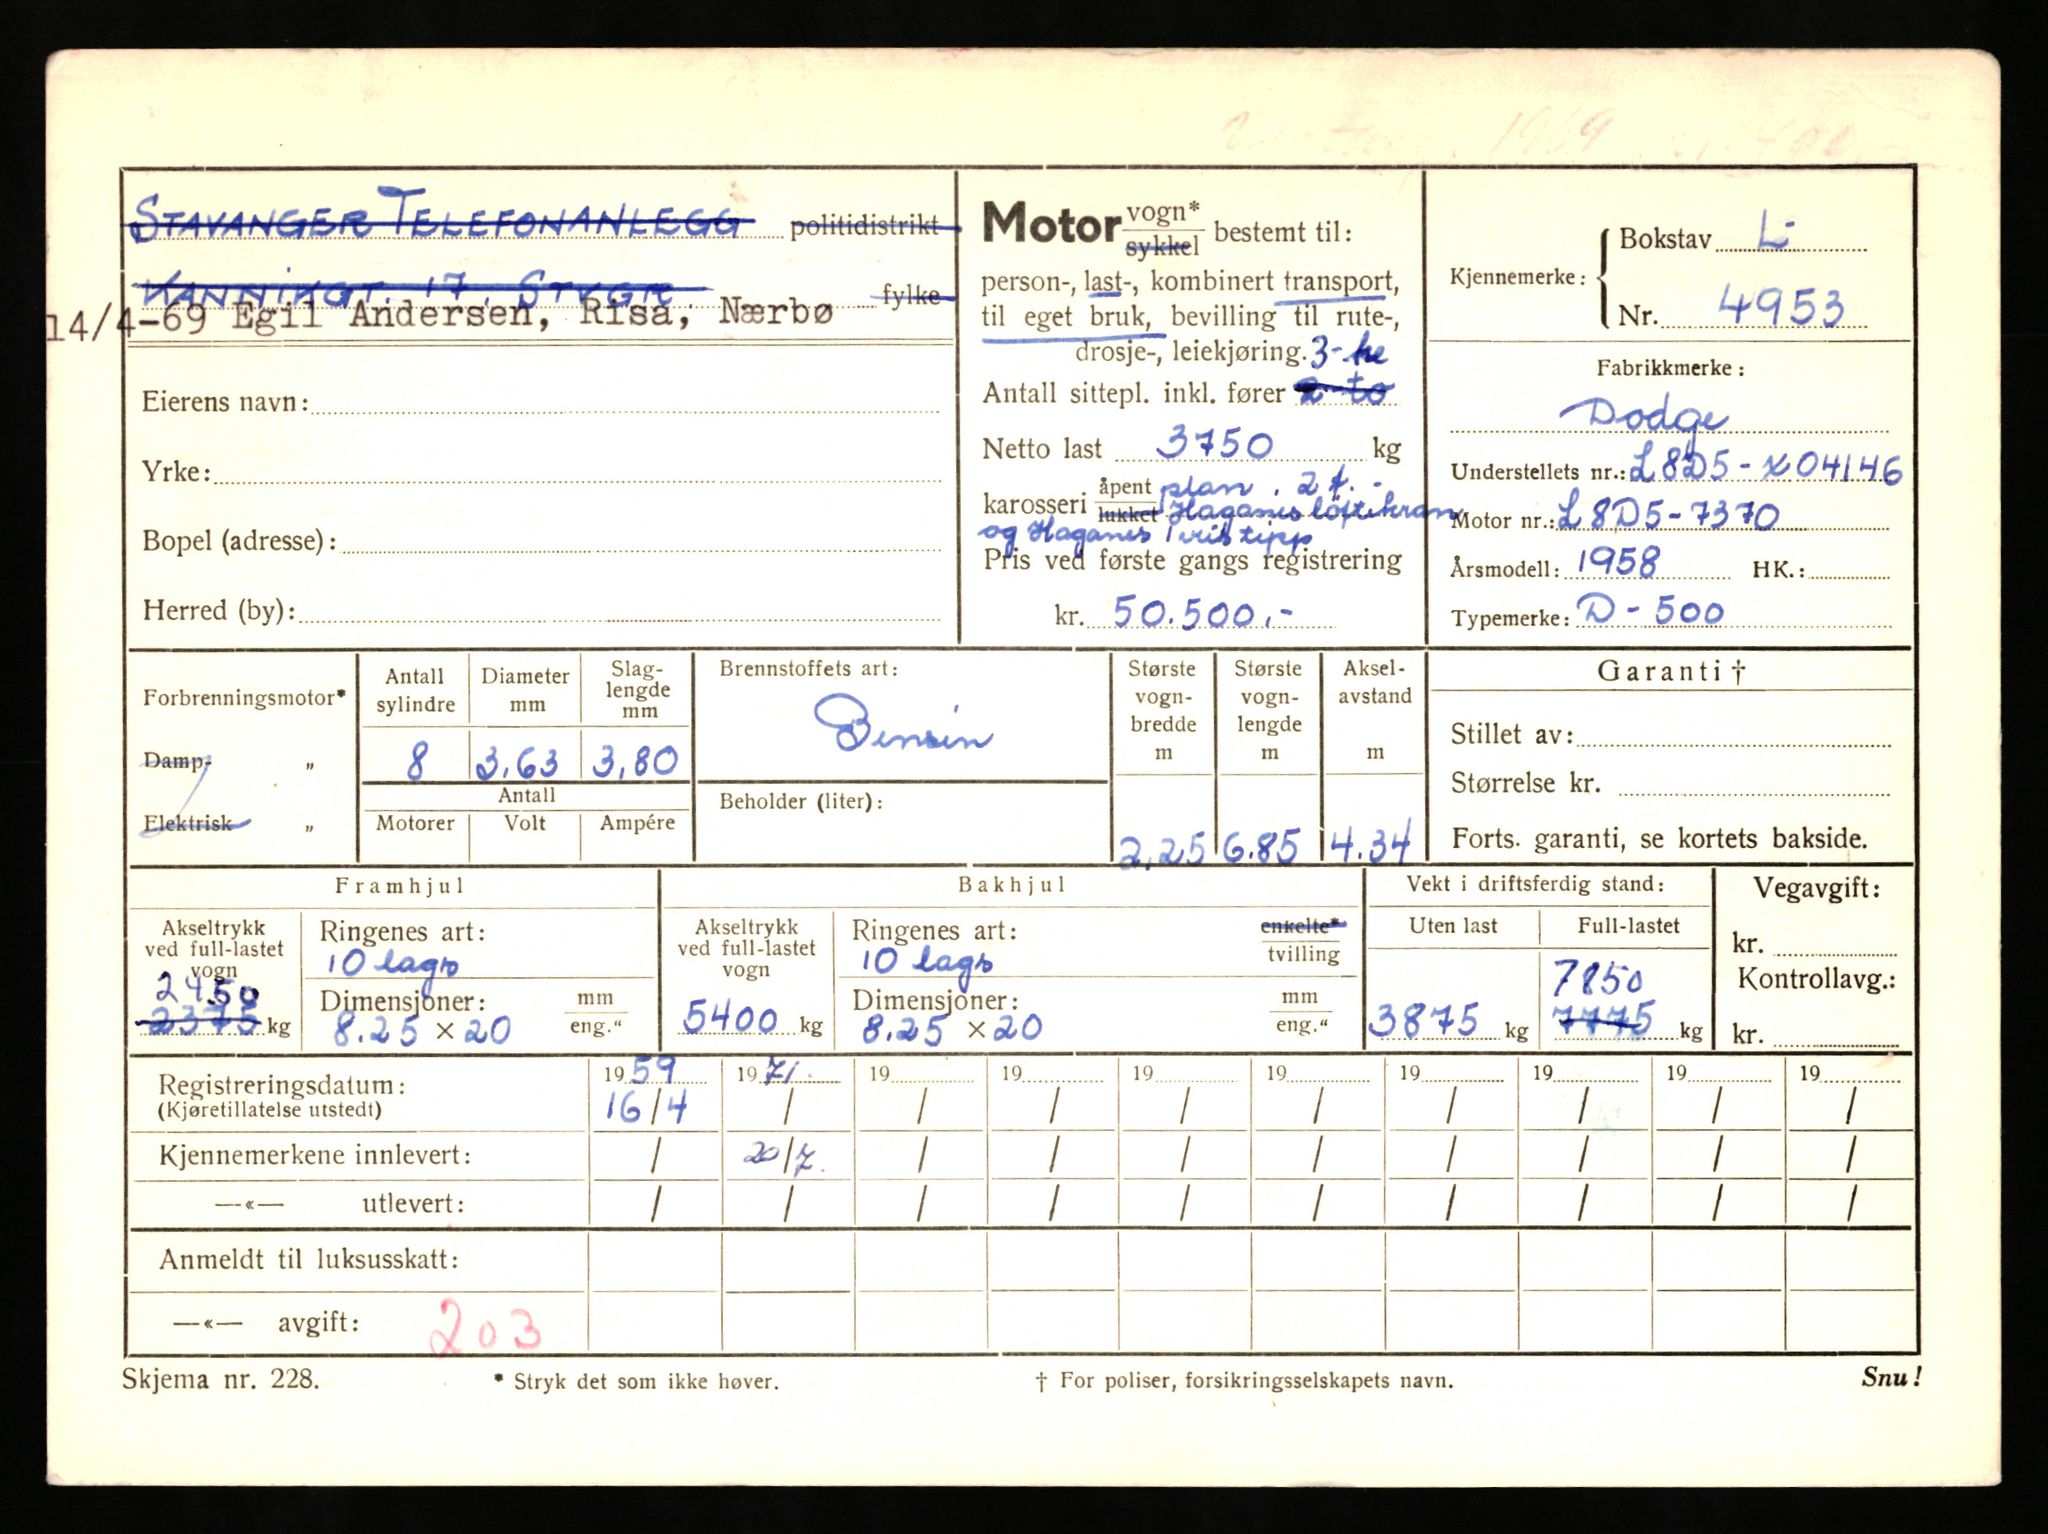 STAVANGER TELEFONANLEGG politidistrikt
KANNIKGT. 17, STVGR. fylke
14/4-69 Egil Andersen, Risa, Nærbø
Eierens navn:
Yrke:
Bopel (adresse):
Herred (by):
Motor vogn* sykkel bestemt til:
person-, last-, kombinert transport,
til eget bruk, bevilling til rute-,
drosje-, leiekjøring. 3-tre
Antall sittepl. inkl. fører 2-to
Netto last 3750 kg
karosseri åpent plan. 2 t.-
lukket Haganes løftekran
og Haganes tipp
Pris ved første gangs registrering
kr. 50.500,-
Kjennemerke: Bokstav L-
Nr. 4953
Fabrikkmerke:
Dodge
Understellets nr.: L8D5-X04146
Motor nr.: L8D5-7370
Årsmodell: 1958 HK.:
Typemerke: D-500
Forbrenningsmotor*
Damp- "
Elektrisk "
Antall sylindre Diameter mm Slag-lengde mm
8 3,63 3,80
Antall
Motorer Volt Ampére
Brennstoffets art:
Bensin
Beholder (liter):
Største vogn-bredde m Største vogn-lengde m Aksel-avstand m
2,25 6.85 4.34
Garanti †
Stillet av:
Størrelse kr.
Forts. garanti, se kortets bakside.
Framhjul
Akseltrykk ved full-lastet vogn
2450
2375 kg
Ringenes art:
10 lags
Dimensjoner: mm
8.25 × 20 eng."
Bakhjul
Akseltrykk ved full-lastet vogn
5400 kg
Ringenes art: enkelte*
10 lags tvilling
Dimensjoner: mm
8.25 × 20 eng."
Vekt i driftsferdig stand:
Uten last Full-lastet
7850
3875 kg 7775 kg
Vegavgift:
kr.
Kontrollavg.:
kr.
Registreringsdatum: 1959 1971. 19 19 19 19 19 19 19 19
(Kjøretillatelse utstedt) 16/4 / / / / / / / / /
Kjennemerkene innlevert: / 20/7. / / / / / / / /
—«— utlevert: / / / / / / / / / /
Anmeldt til luksusskatt:
—«— avgift: 203
Skjema nr. 228. * Stryk det som ikke høver. † For poliser, forsikringsselskapets navn. Snu!